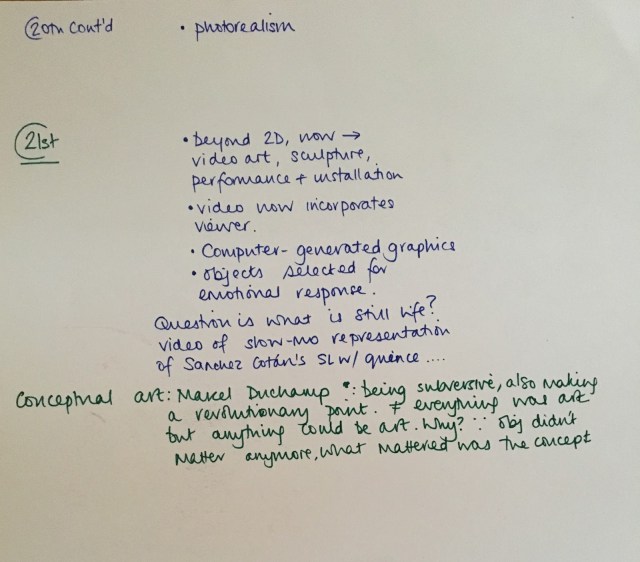 C20th cont'd • photorealism
C21st • beyond 2D, now →
video art, sculpture,
performance + installation
• video now incorporates
viewer.
• Computer-generated graphics
• objects selected for
emotional response.
Question is what is still life?
video of slow-mo representation
of Sanchez Cotán's SL w/ quince ....
Conceptual art: Marcel Duchamp ∵ being subversive, also making
a revolutionary point. ≠ everything was art
but anything could be art. Why? ∵ obj didn't
matter anymore, what mattered was the concept